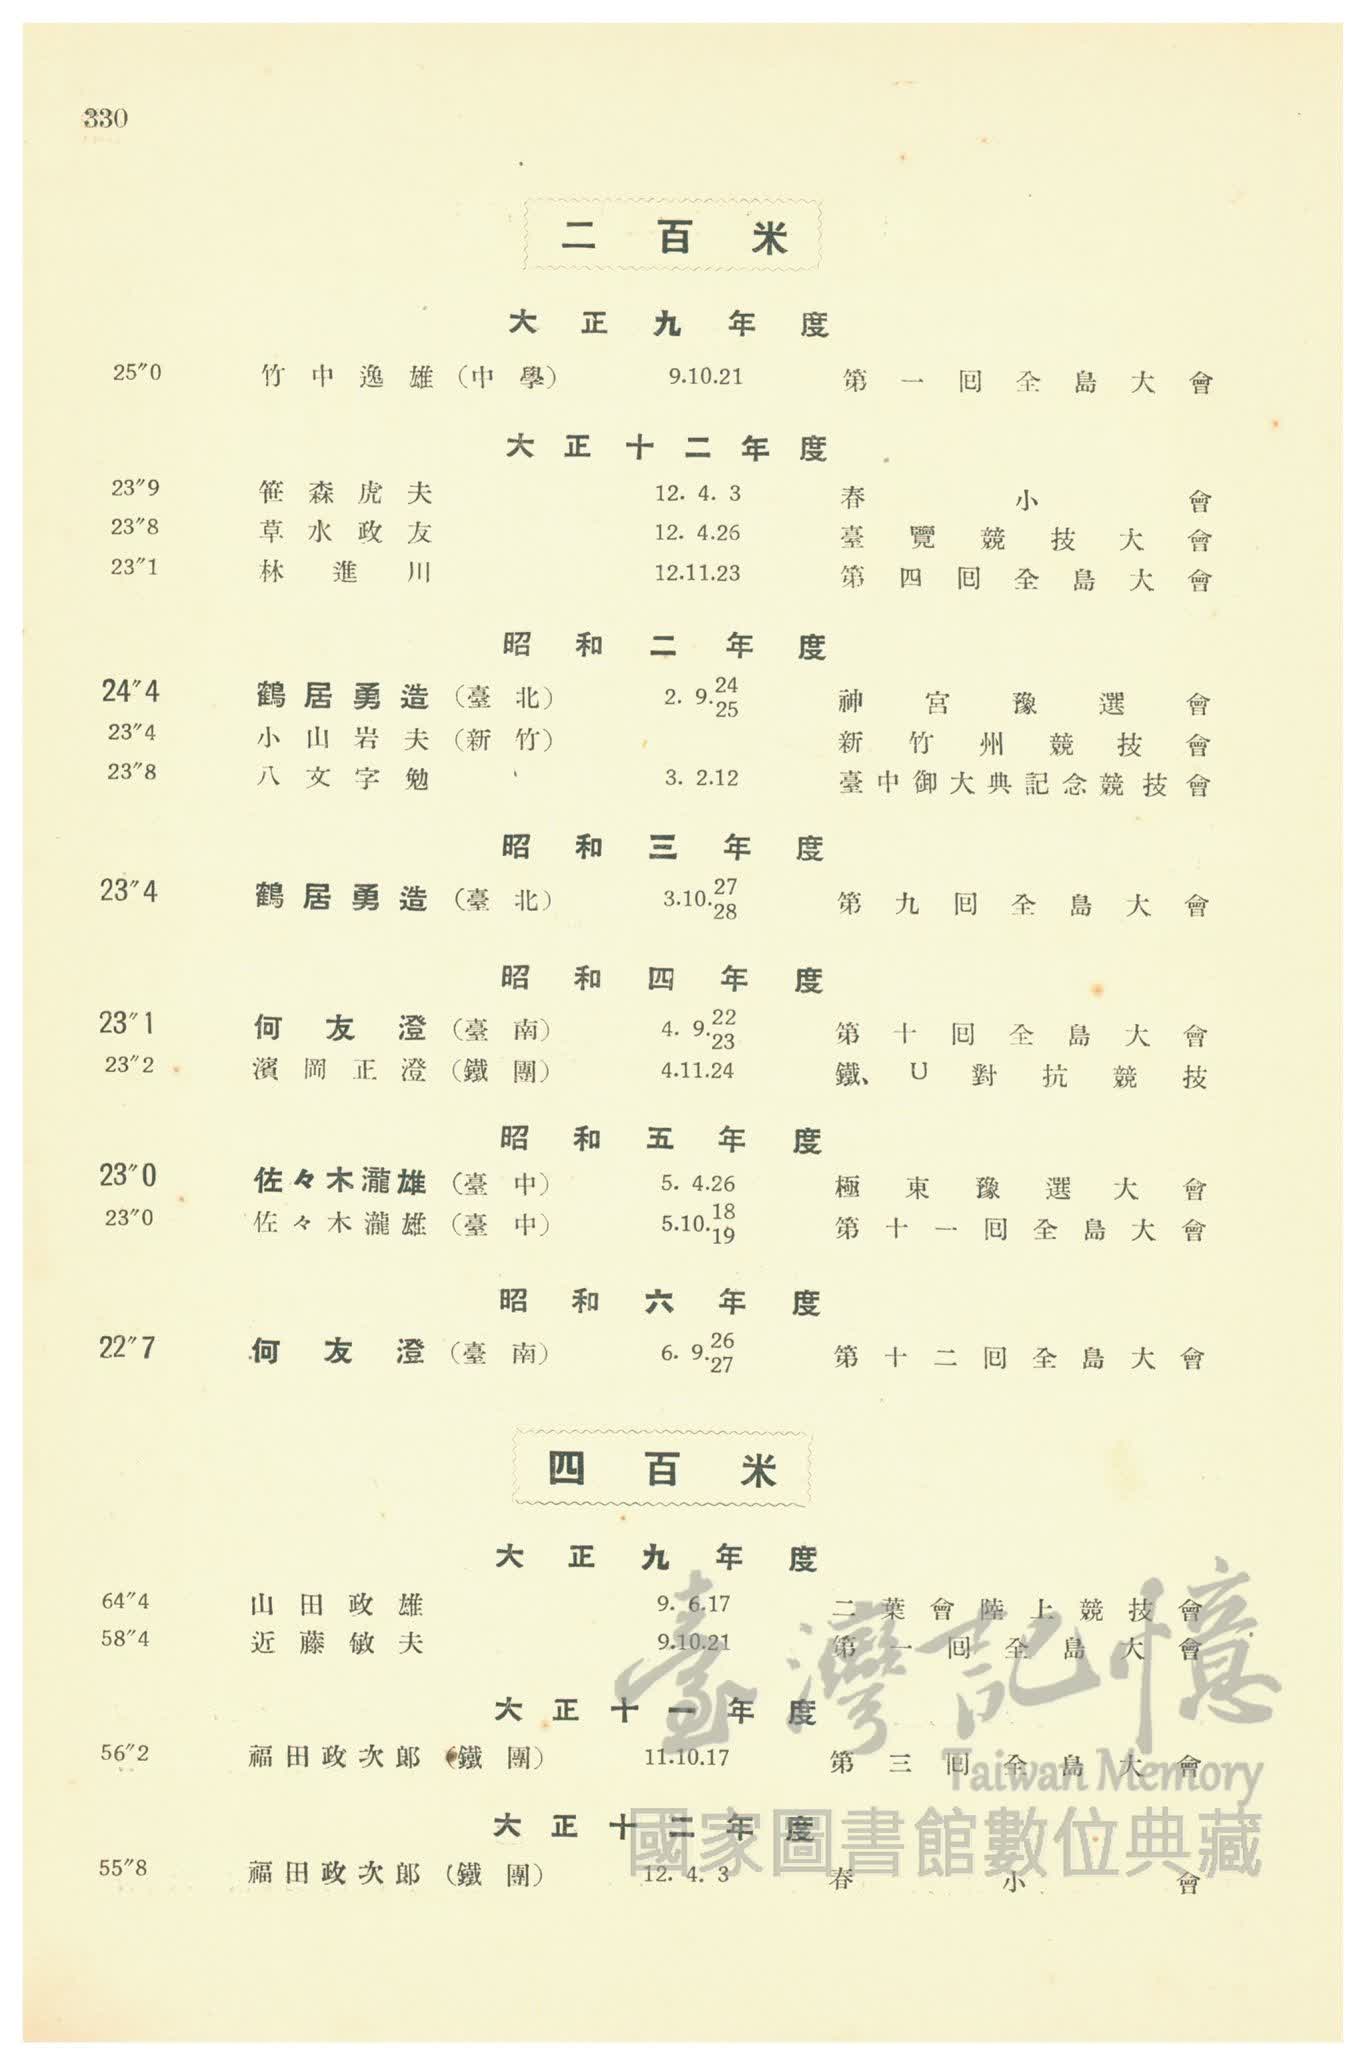 330
二百米
大正九年度
25″0 竹中逸雄(中學) 9.10.21 第一囘全島大會
大正十二年度
23″9 笹森虎夫 12. 4. 3 春小會
23″8 草水政友 12. 4.26 臺覽競技大會
23″1 林進川 12.11.23 第四囘全島大會
昭和二年度
24″4 鶴居勇造(臺北) 2. 9.24/25 神宮豫選會
23″4 小山岩夫(新竹) 新竹州競技會
23″8 八文字勉 3. 2.12 臺中御大典記念競技會
昭和三年度
23″4 鶴居勇造(臺北) 3.10.27/28 第九囘全島大會
昭和四年度
23″1 何友澄(臺南) 4. 9.22/23 第十囘全島大會
23″2 濱岡正澄(鐵團) 4.11.24 鐵、U對抗競技
昭和五年度
23″0 佐々木瀧雄(臺中) 5. 4.26 極東豫選大會
23″0 佐々木瀧雄(臺中) 5.10.18/19 第十一囘全島大會
昭和六年度
22″7 何友澄(臺南) 6. 9.26/27 第十二囘全島大會
四百米
大正九年度
64″4 山田政雄 9. 6.17 二葉會陸上競技會
58″4 近藤敏夫 9.10.21 第一囘全島大會
大正十一年度
56″2 福田政次郞(鐵團) 11.10.17 第三囘全島大會
大正十二年度
55″8 福田政次郞(鐵團) 12. 4. 3 春小會
臺灣記憶
Taiwan Memory
國家圖書館數位典藏